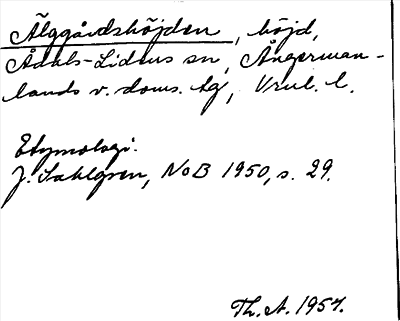 Älggårdshöjden, höjd,
Ådals-Lidens sn, Ångerman-
lands v. doms. hg, Vnl. l.
Etymologi.
J. Sahlgren, NoB 1950, s. 29.
Th. A. 1957.